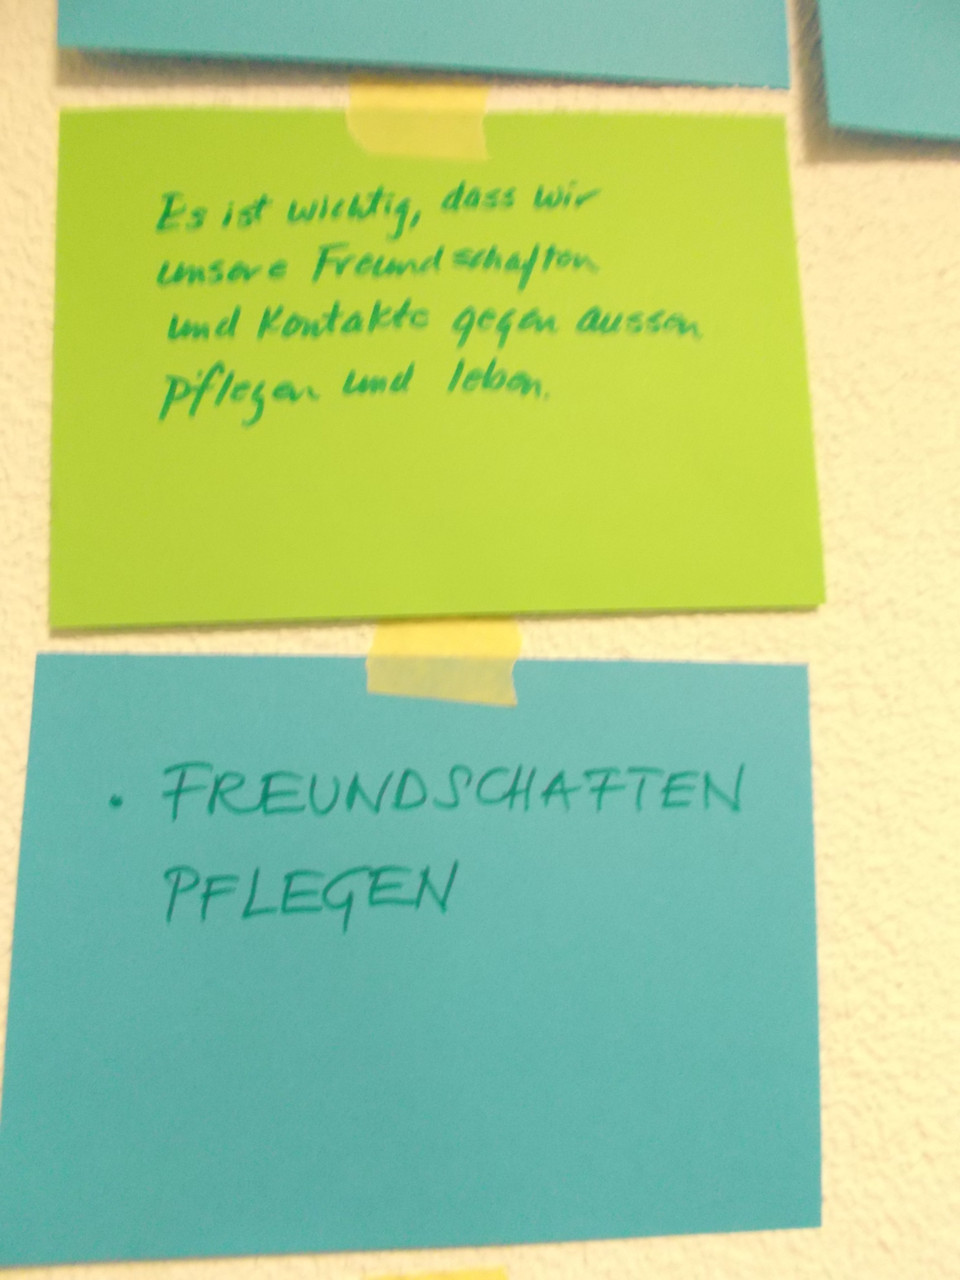 Es ist wichtig, dass wir
unsere Freundschaften
und Kontakte gegen aussen
pflegen und leben.
• FREUNDSCHAFTEN
PFLEGEN